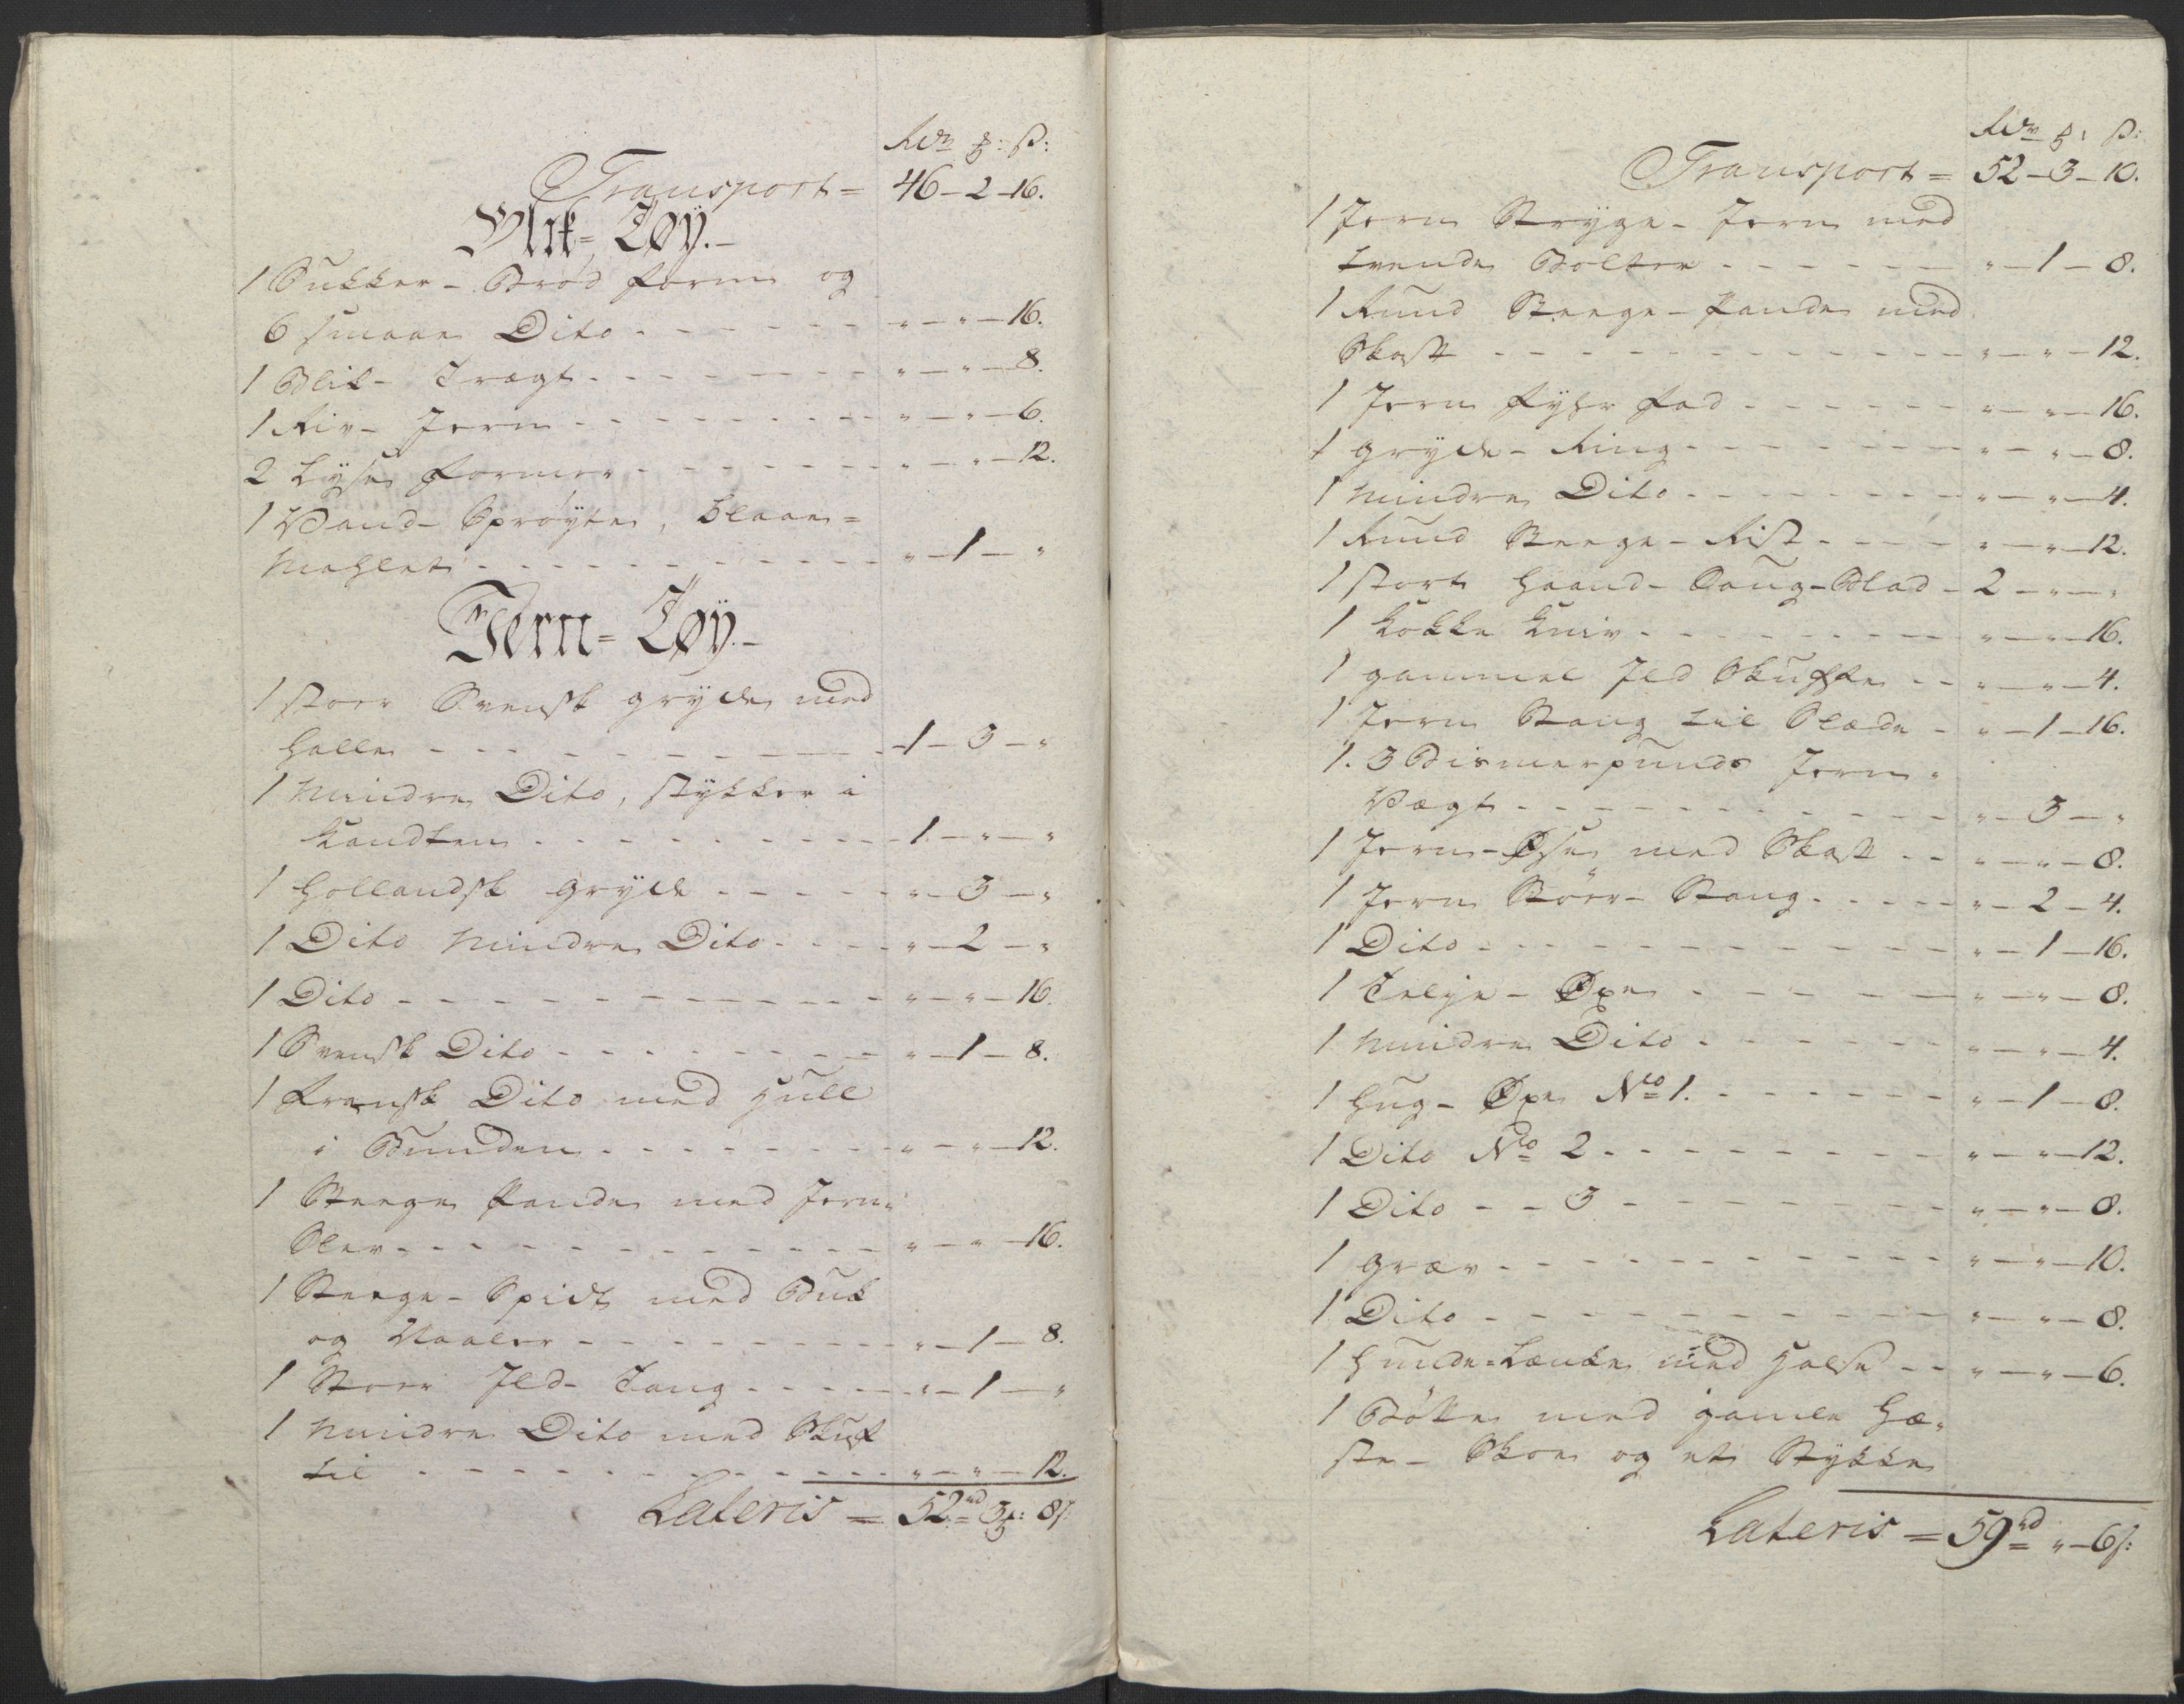 Rdr ꝑ: ß:
Transport = 46 – 2 – 16.
Blik = Tøÿ. –
1 Sukker - Brød form og
6 smaae Dito - - - - - " – " – 16.
1 Blik - Tragt - - - - - " – " – 8.
1 Riv - Jern - - - - - " – " – 6.
2 Lyse former - - - - - " – " – 12.
1 Vand - Sprøyte, blaae =
mahlet - - - - - " – 1 – "
Jern = Tøÿ. –
1 stoer Svensk gryde med
Halle - - - - - 1 – 3 – "
1 mindre Dito, stykker i
Kandten - - - - - 1 – " – "
1 Hollandsk gryde - - - - - " – 3 – "
1 Dito mindre Dito - - - - " – 2 – "
1 Dito - - - - - " – " – 16.
1 Svensk Dito - - - - - " – 1 – 8.
1 fransk Dito med Hull
i Bunden - - - - - " – " – 12.
1 Steege Pande med Jern =
Slev - - - - - " – " – 16.
1 Steege - Spidt med Buk
og Naaler - - - - - " – 1 – 8.
1 Stoer Ild - Tang - - - - - " – 1 – "
1 mindre Dito med Skuf
til - - - - - " – " – 12.
Lateris = 52 rd 3 ꝑ: 8 ß.
Rdr ꝑ: ß:
Transport = 52 – 3 – 10.
1 Jern Stryge - Jern med
tvende Bolter - - - - - " – 1 – 8.
1 Rund Steege - Pande med
Skaft - - - - - " – " – 12.
1 Jern fyhr fad - - - - - " – " – 16.
1 gryde - Ring - - - - - " – " – 8.
1 mindre Dito - - - - - " – " – 4.
1 Rund Steege - Rist - - - - " – " – 12.
1 stort Haand - Saug - Blad - 2 – " – "
1 Kokke Kniv - - - - - " – " – 16.
1 gammel Ild Skuffe - - " – " – 4.
1 Jern Stang til Slæde - " – 1 – 16.
1. 3 Bismerpunds Jern =
Vægt - - - - - " – 3 – "
1 Jern - Øse med Skaft - - " – " – 8.
1 Jern Stöer - Stang - - - - - " – 2 – 4.
1 Dito - - - - - " – 1 – 16.
1 Telje - Øxe - - - - - " – " – 8.
1 mindre Dito - - - - - " – " – 4.
1 Hug - Øxe No 1. - - - - - " – 1 – 8.
1 Dito No 2 - - - - - " – " – 12.
1 Dito - - 3 - - - - - " – " – 8.
1 græv - - - - - " – " – 10.
1 Dito - - - - - " – " – 8.
1 Hunde = Lænke med Halse - - " – " – 6.
1 Bøtte med gamle Hæ =
ste - Skoe og et Stykke
Lateris = 59 rd " – 6 ß: